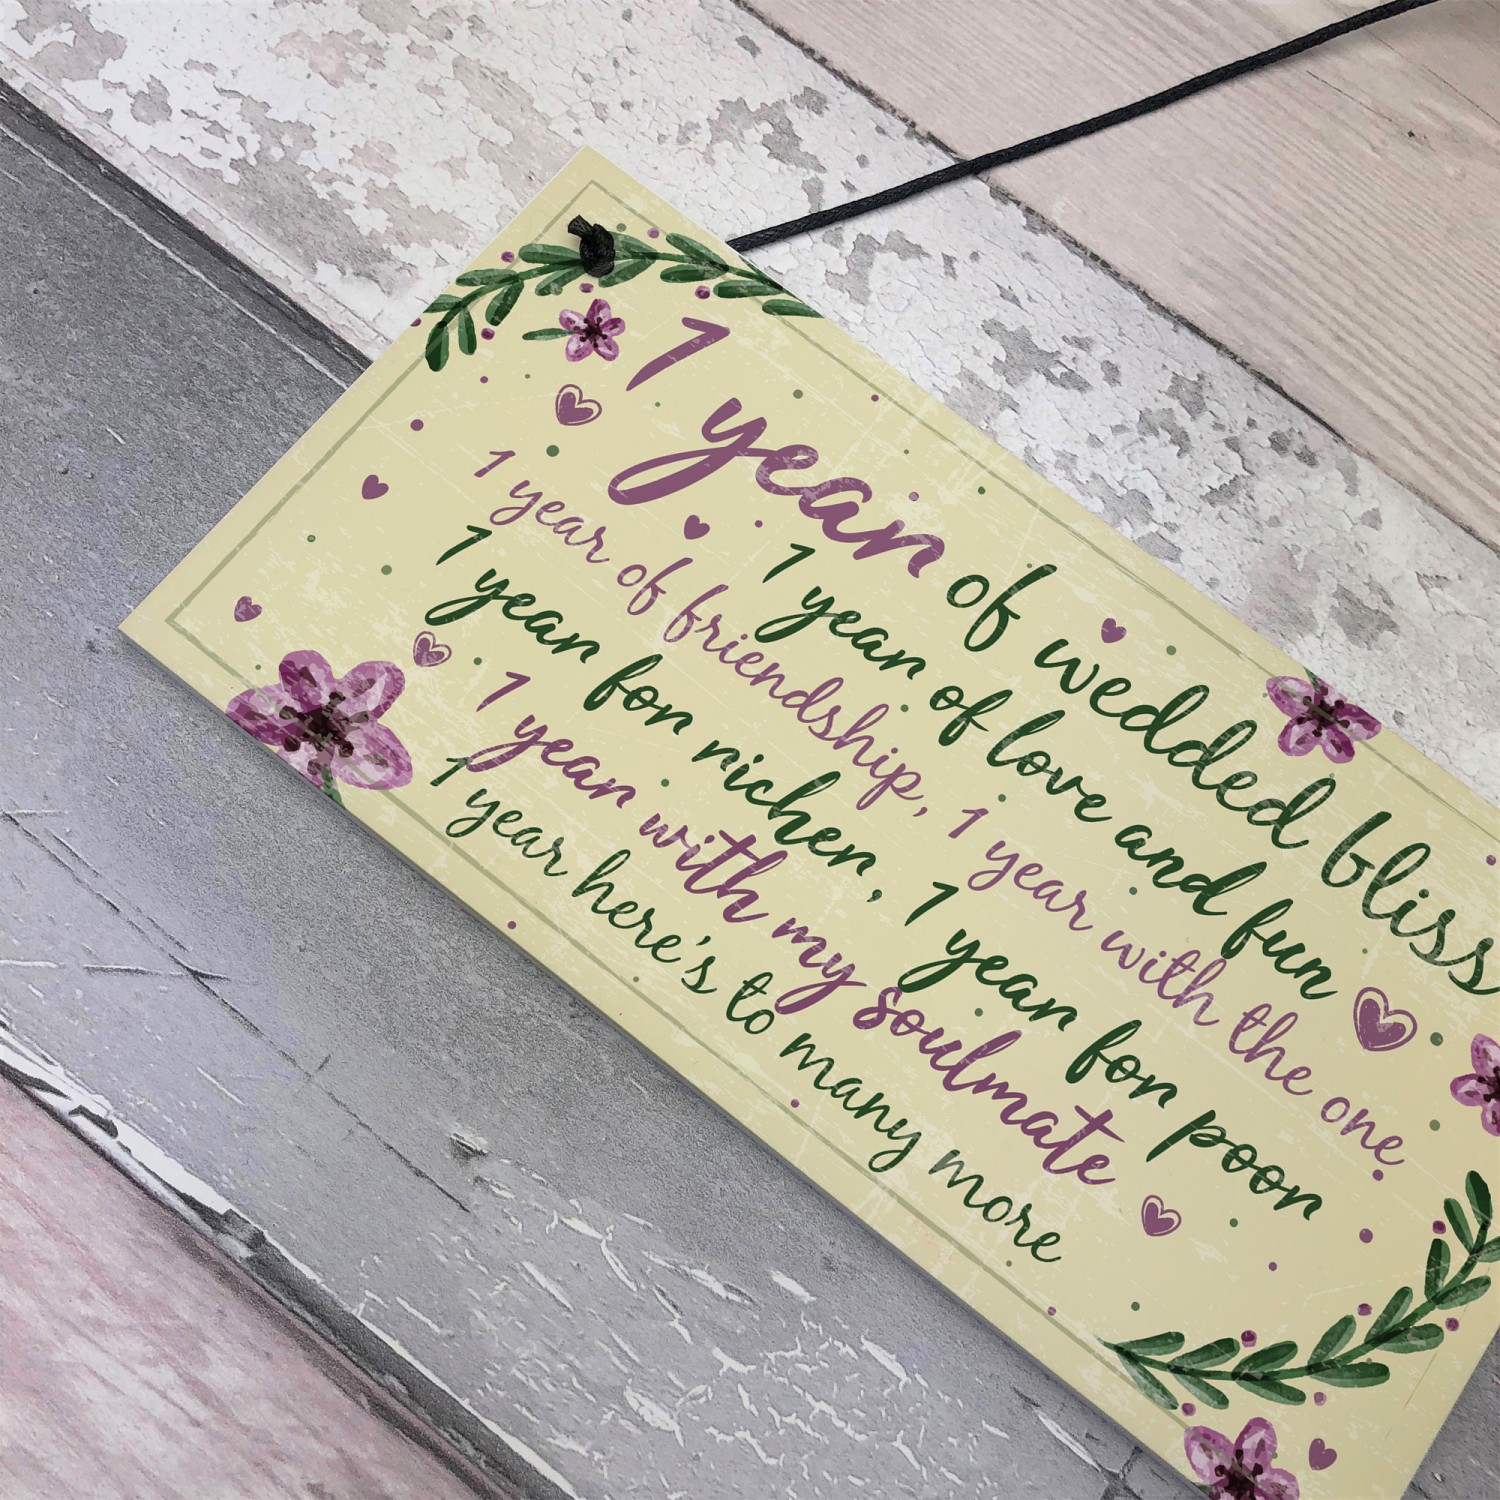 1 year of wedded bliss
1 year of love and fun
1 year of friendship, 1 year with the one
1 year for richer, 1 year for poor
1 year with my soulmate
1 year here's to many more